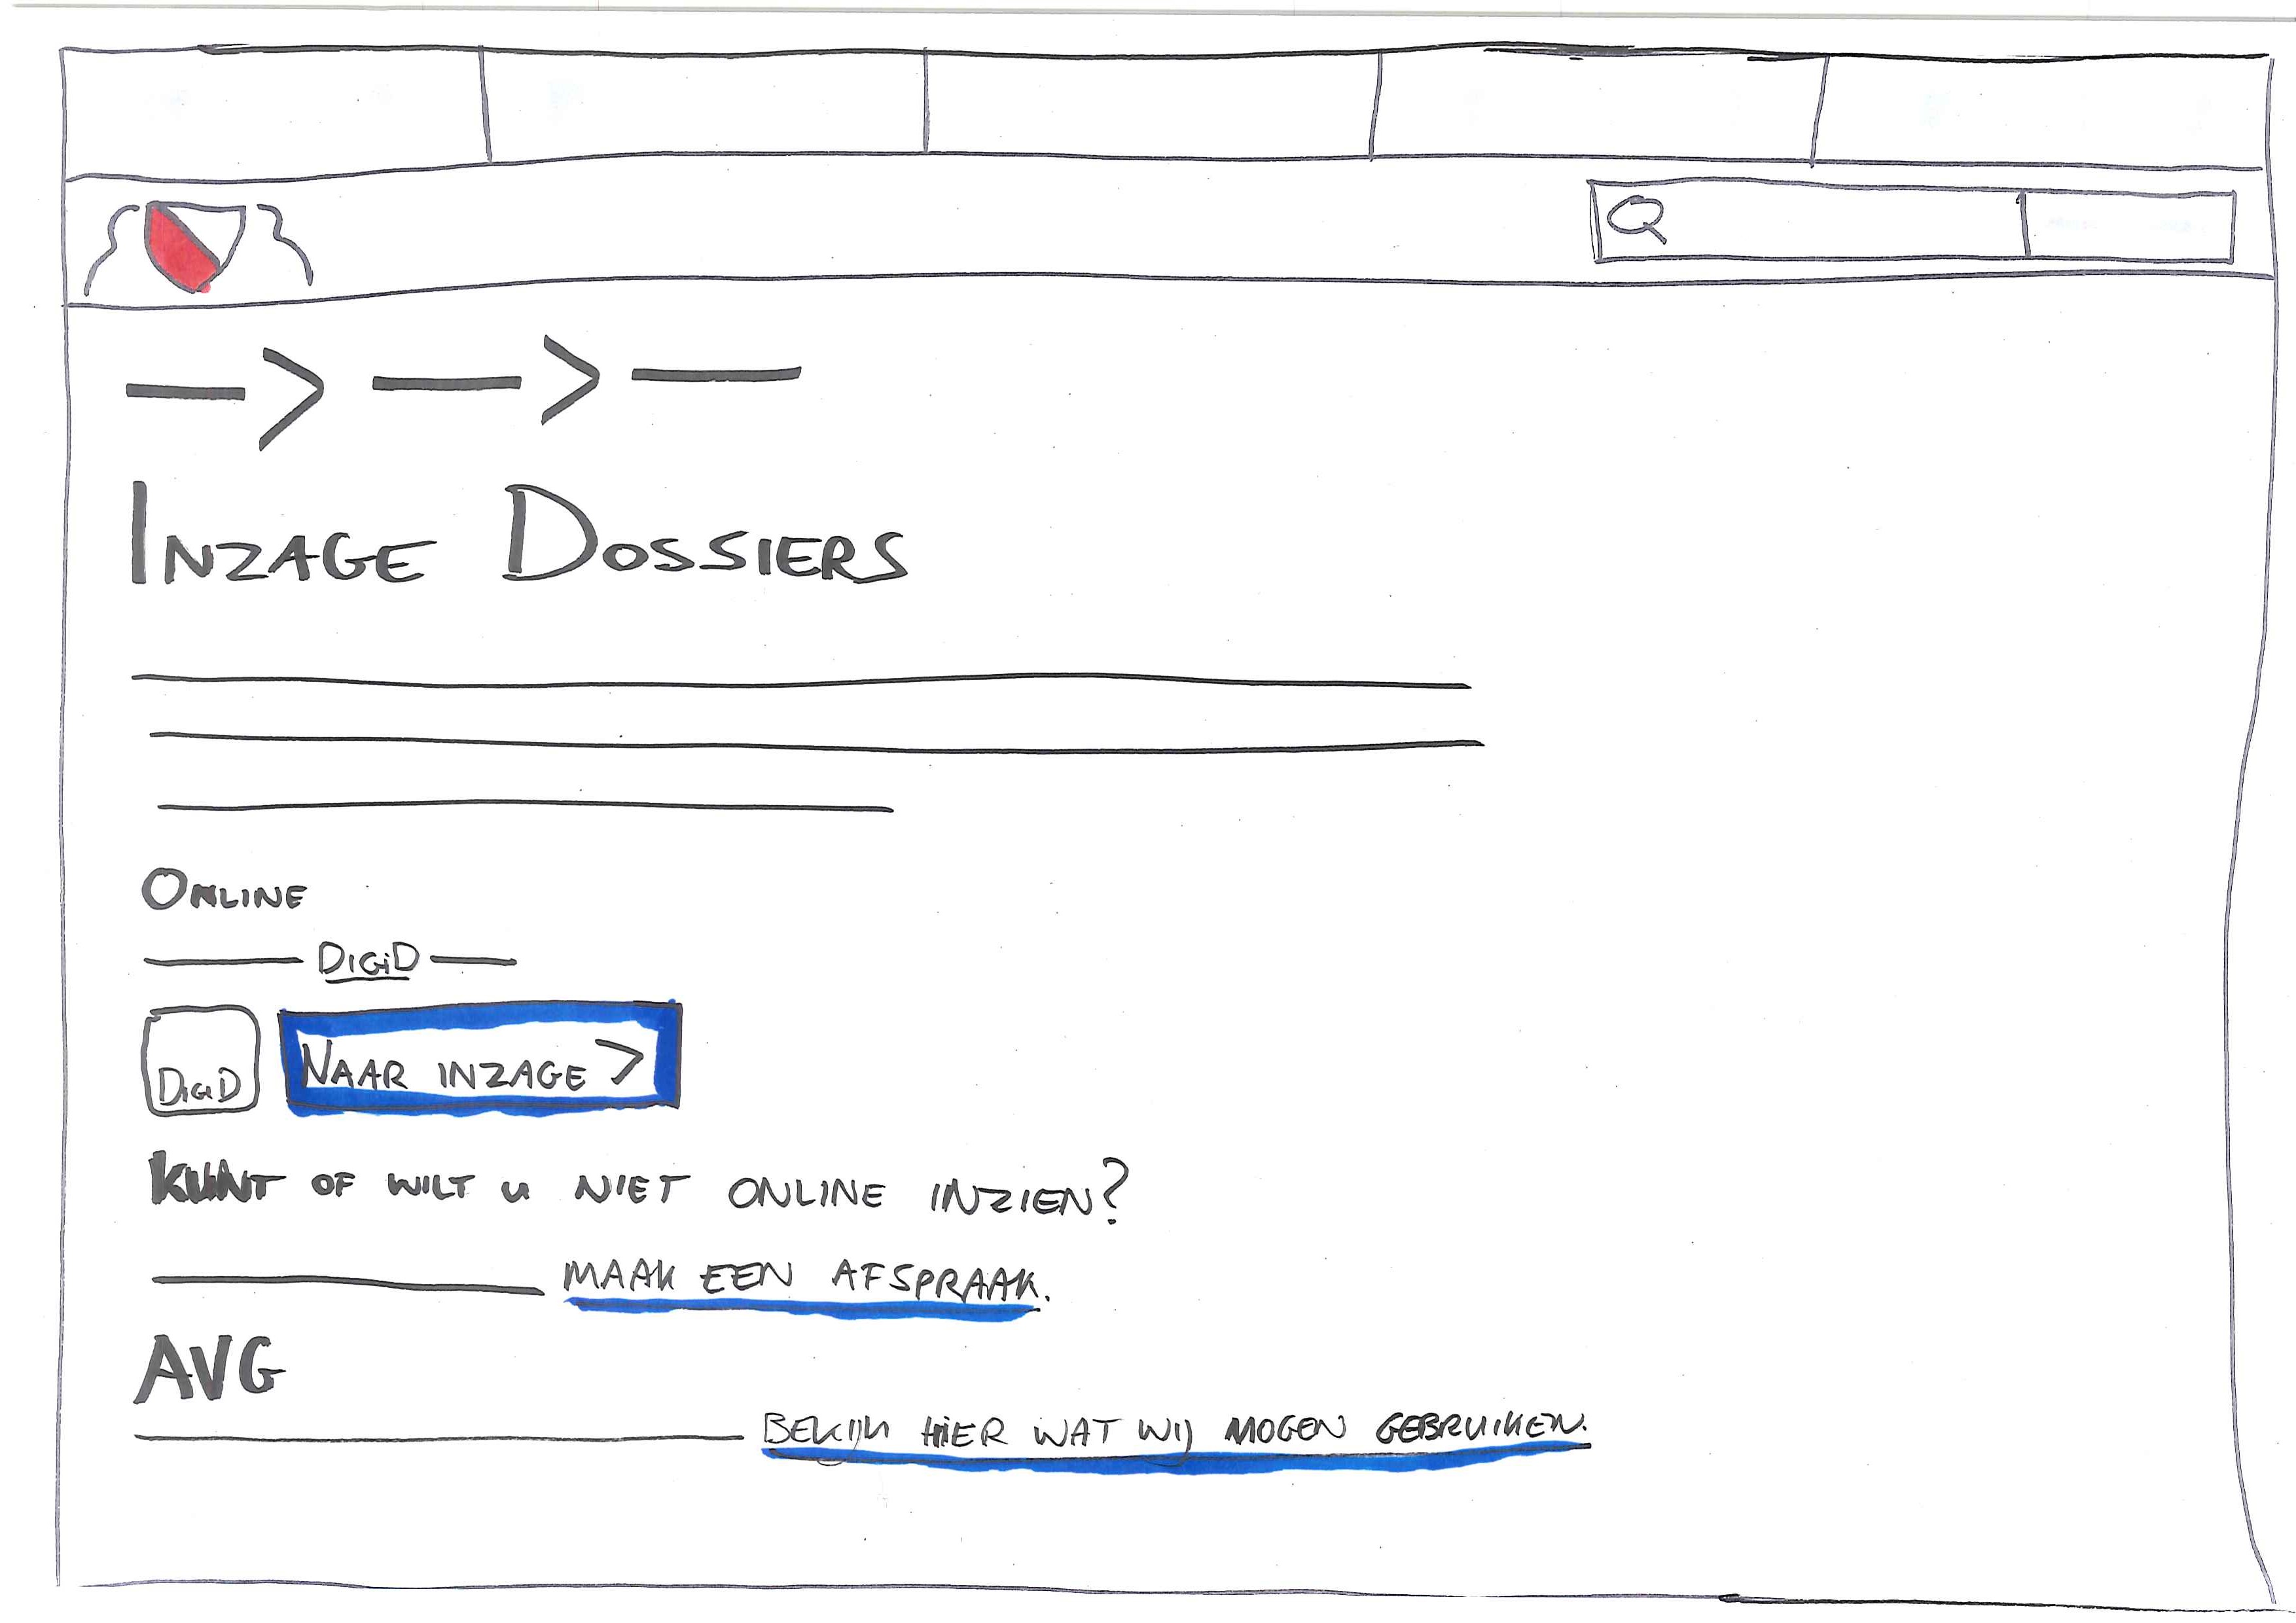 INZAGE DOSSIERS
ONLINE
DIGID
DIGID
NAAR INZAGE >
KUNT OF WILT U NIET ONLINE INZIEN?
MAAK EEN AFSPRAAK.
AVG
BEKIJK HIER WAT WIJ MOGEN GEBRUIKEN.